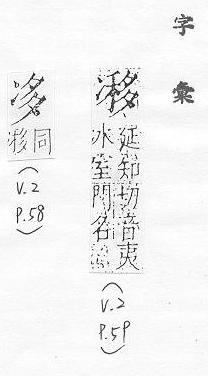 字彙
延知切音夷
氷室門名
(V.2
P.59)
同
(V.2
P.58)